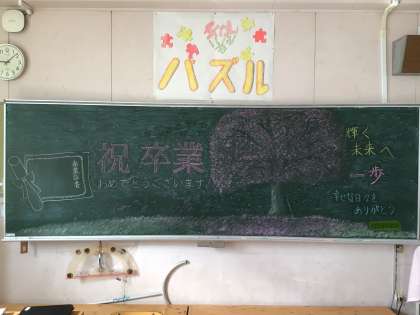 パズル
祝卒業
おめでとうございます
卒業証書
輝く
未来へ
一歩
幸せな日々を
ありがとう